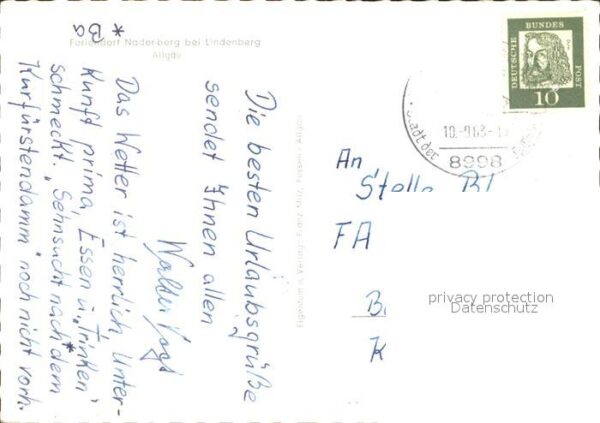 * Ba
Feriendorf Nadenberg bei Lindenberg
Allgäu
Die besten Urlaubsgrüße
sendet Ihnen allen
Walter
Das Wetter ist herrlich, Unter-
kunft prima, Essen u. „Trinken"
schmeckt. „Sehnsucht nach dem
Kurfürstendamm" noch nicht vorh.
*
Eigentum u. Verlag: Franz Milz, Füssen / Allgäu
DEUTSCHE
BUNDES
POST
10
Stadt der
10.-9.63.-1
8998
An
Stelle
FA
B.
K
privacy protection
Datenschutz